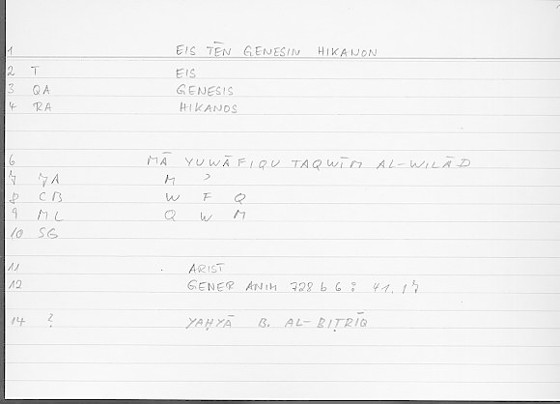 1 EIS TĒN GENESIN HIKANON
2 T EIS
3 QA GENESIS
4 RA HIKANOS
6 MĀ YUWĀFIQU TAQWĪM AL-WILĀD
7 7A M ʾ
8 CB W F Q
9 ML Q W M
10 SG
11 ARIST
12 GENER ANIM 728 b 6 : 41,17
14 ? YAḤYĀ B. AL-BIṬRĪQ